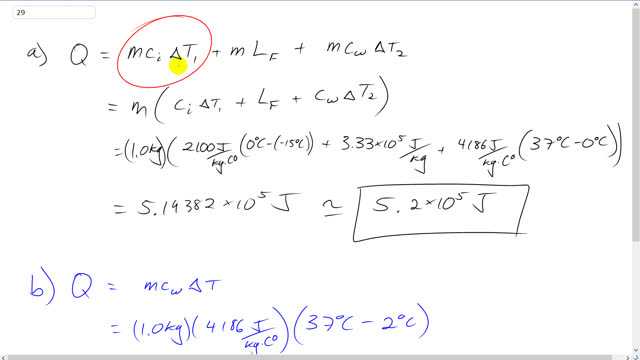 29
a) Q = mcᵢ ΔT₁ + m L_F + mc_w ΔT₂
= m ( cᵢ ΔT₁ + L_F + c_w ΔT₂ )
= (1.0kg) ( 2100 J/kg·C° (0°C-(-15°C)) + 3.33×10⁵ J/kg + 4186 J/kg·C° (37°C-0°C) )
= 5.19382×10⁵ J ≃ 5.2×10⁵ J
b) Q = mc_w ΔT
= (1.0kg) ( 4186 J/kg·C° ) ( 37°C - 2°C )